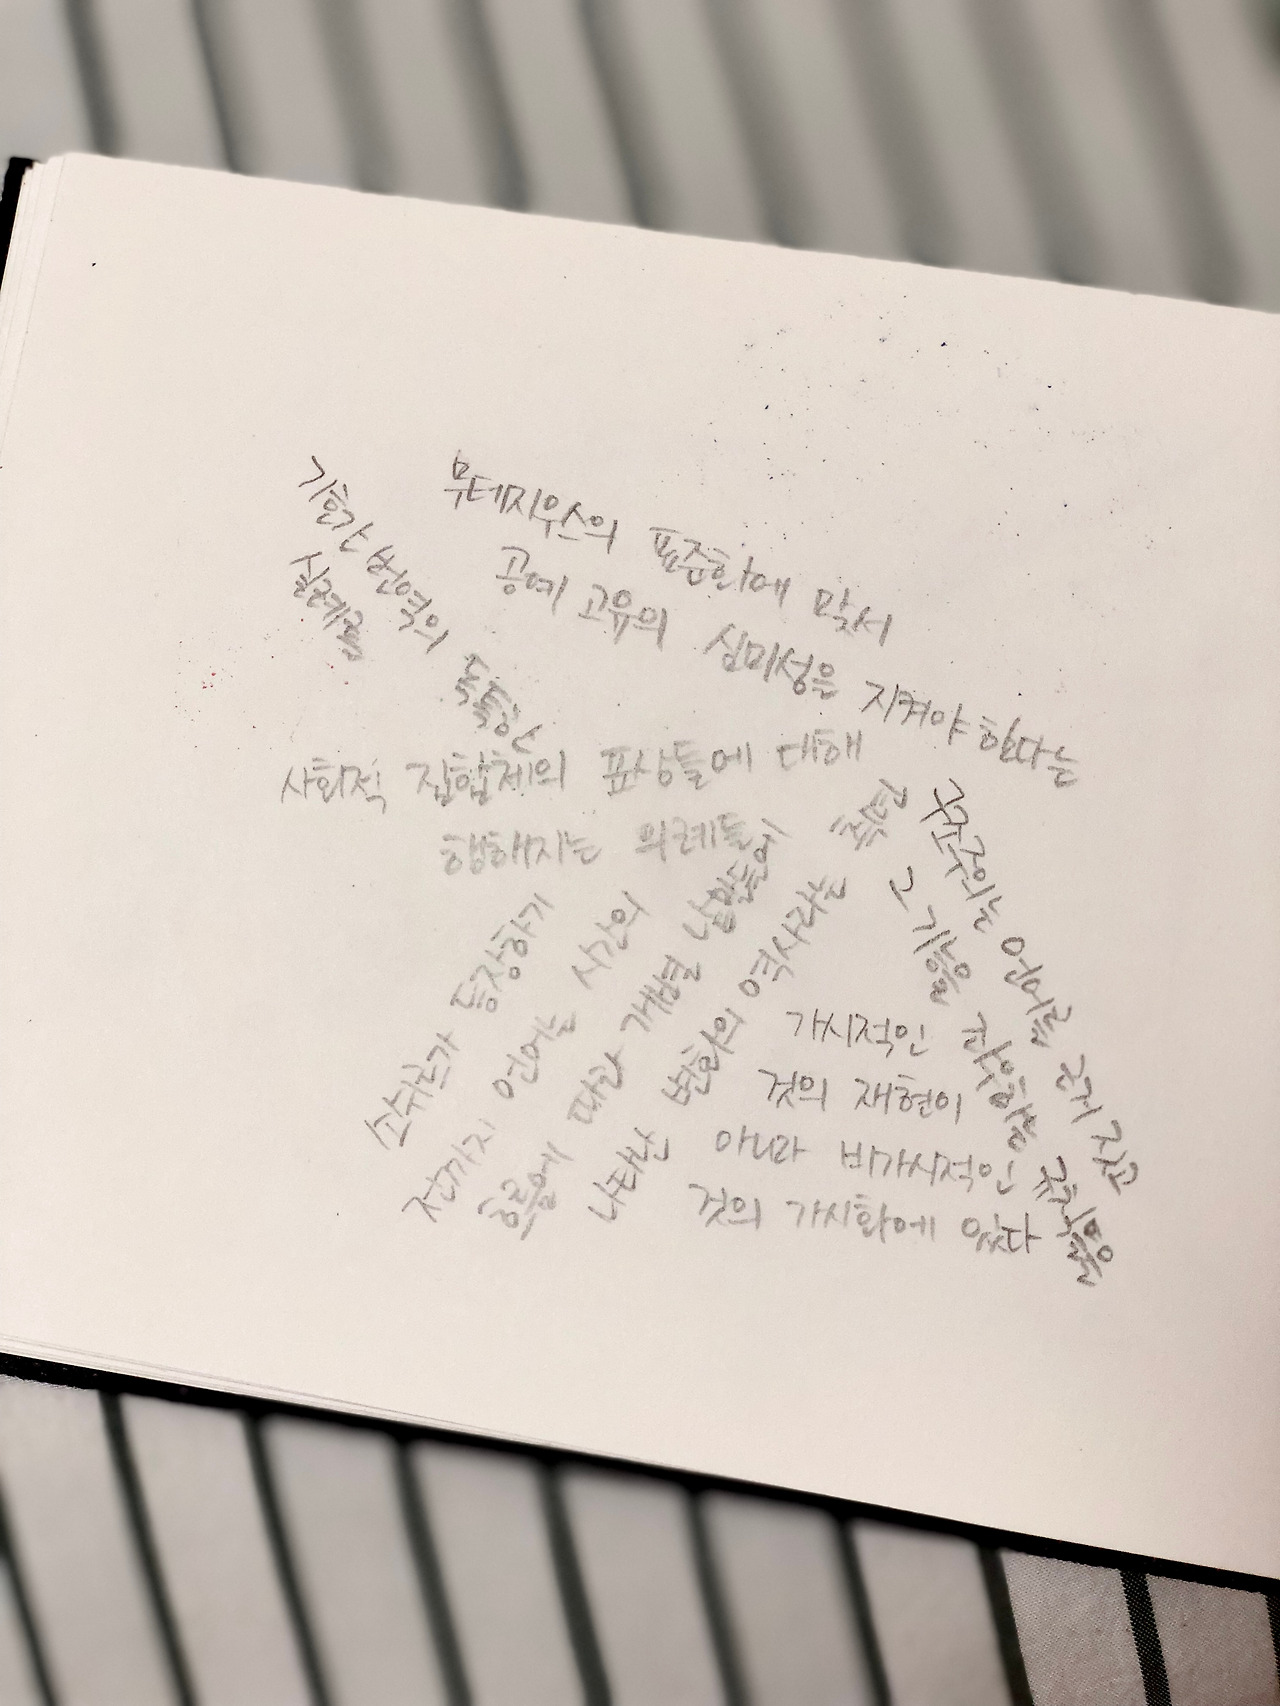 뮤테지우스의 표준화에 맞서
공예 고유의 심미성을 지켜야 한다는
기호간 번역의 독특한
실례를
사회적 집합체의 표상들에 대해
행해지는 의례들
소쉬르가 등장하기
전까지 언어는 시간의
흐름에 따라 개별 낱말들에
나타난 변화의 역사라는 측면
구조주의는 언어를 쪼개지고
그 기능을 파악할 규칙을
가시적인
것의 재현이
아니라 비가시적인
것의 가시화에 있다